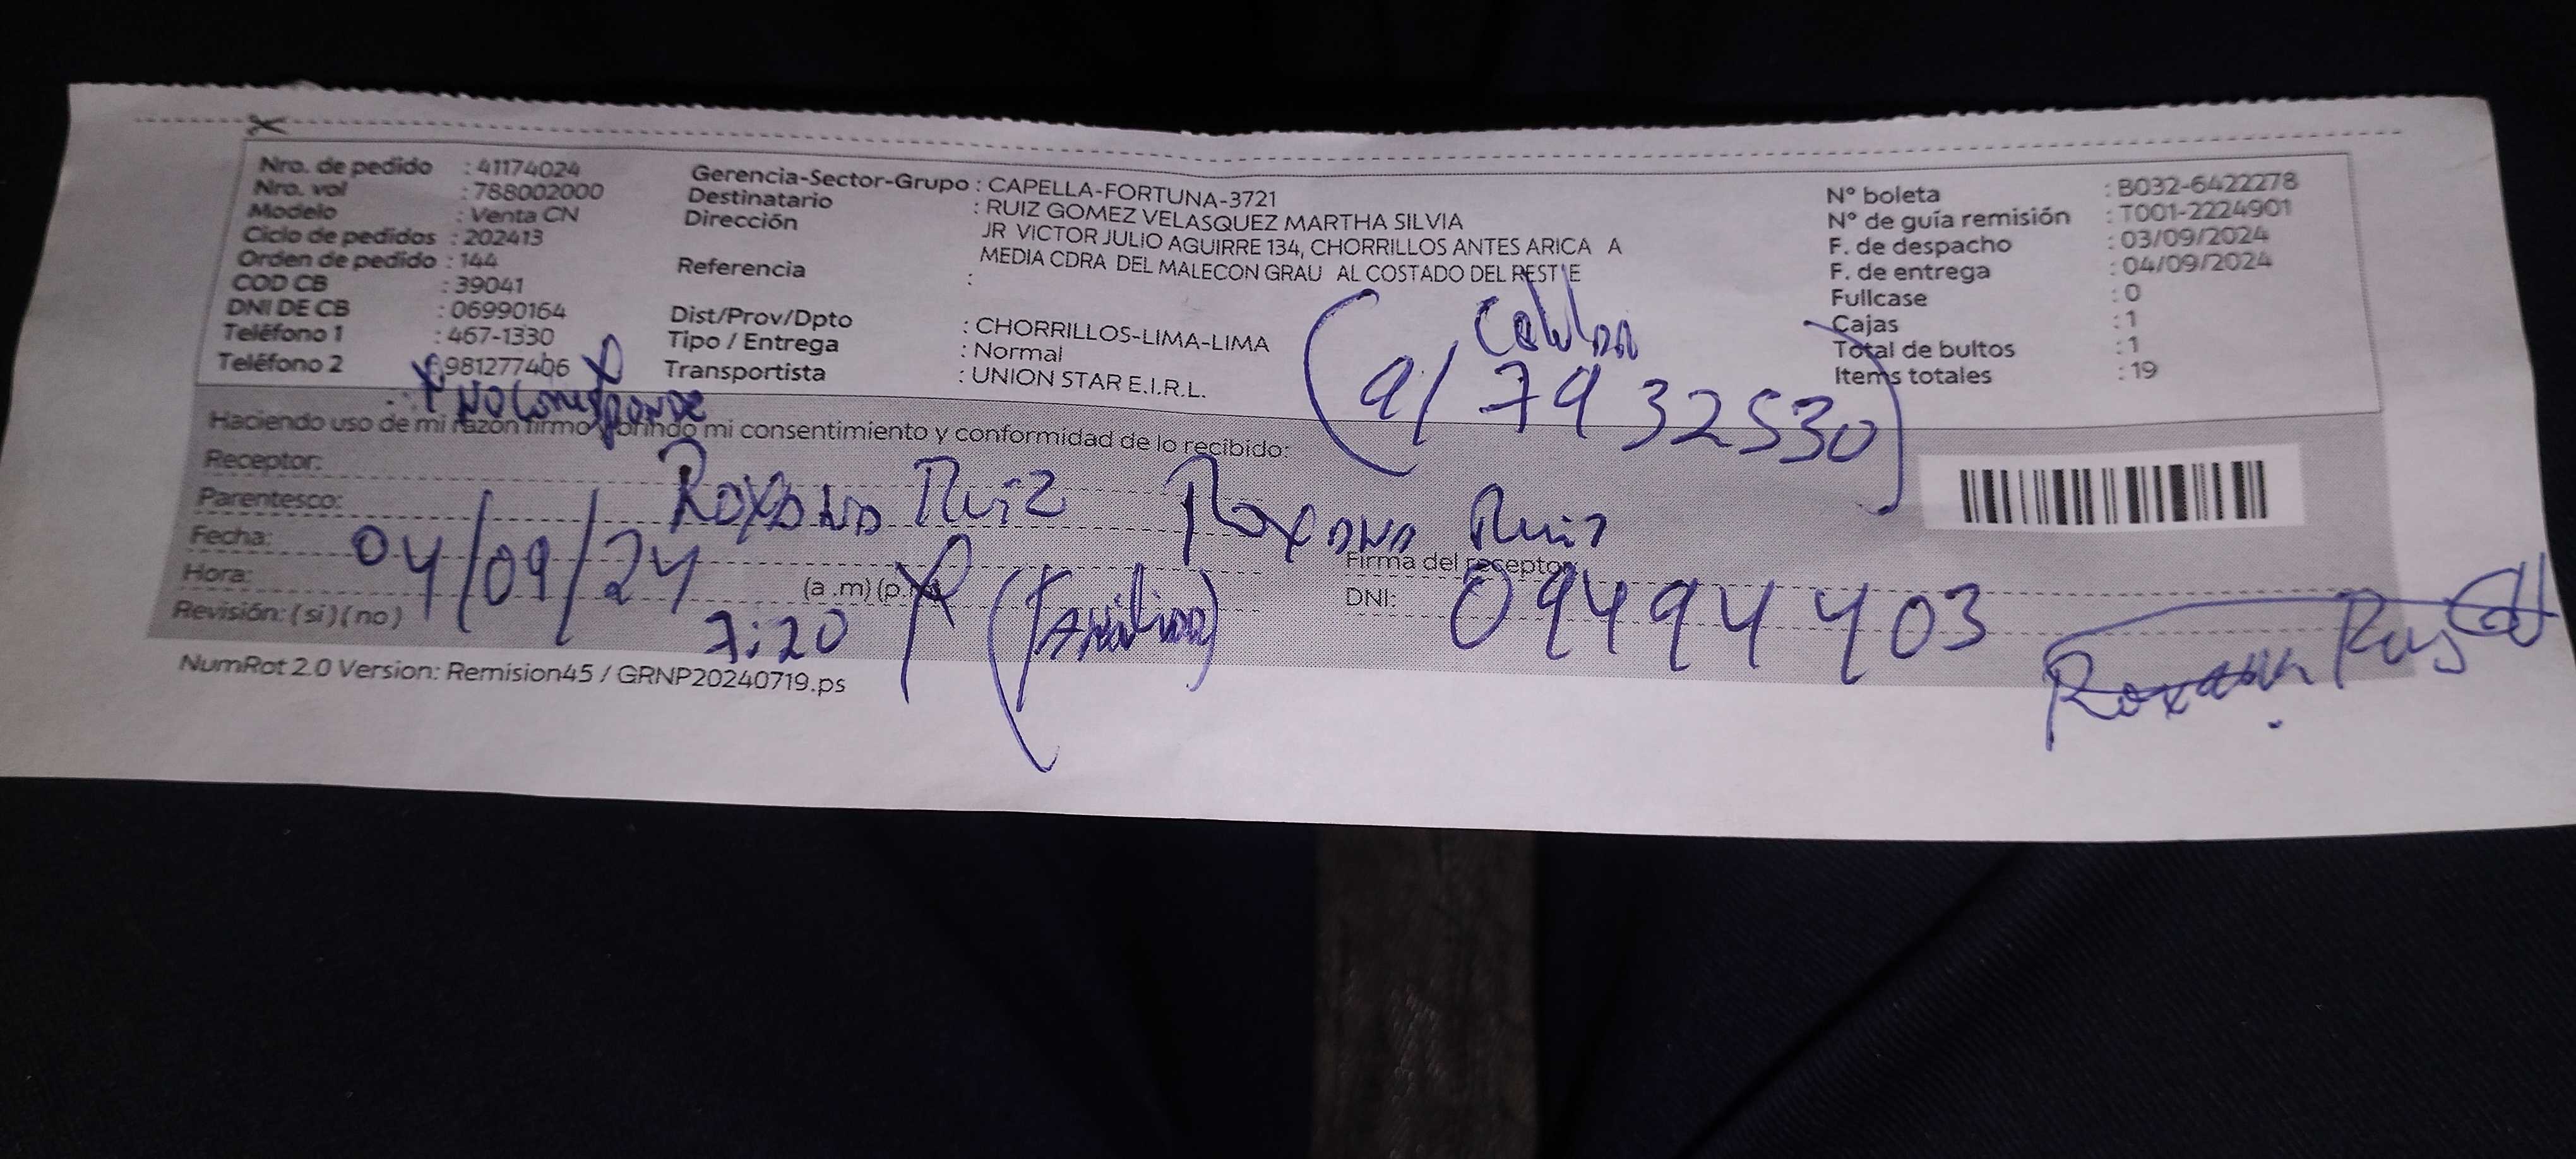 Nro. de pedido : 41174024
Nro. vol : 788002000
Modelo : Venta CN
Ciclo de pedidos : 202413
Orden de pedido : 144
COD CB : 39041
DNI DE CB : 06990164
Teléfono 1 : 467-1330
Teléfono 2 : 981277406
No Corresponde
Gerencia-Sector-Grupo : CAPELLA-FORTUNA-3721
Destinatario : RUIZ GOMEZ VELASQUEZ MARTHA SILVIA
Dirección : JR VICTOR JULIO AGUIRRE 134, CHORRILLOS ANTES ARICA A
MEDIA CDRA DEL MALECON GRAU AL COSTADO DEL REST E
Referencia :
Dist/Prov/Dpto : CHORRILLOS-LIMA-LIMA
Tipo / Entrega : Normal
Transportista : UNION STAR E.I.R.L.
N° boleta : B032-6422278
N° de guía remisión : T001-2224901
F. de despacho : 03/09/2024
F. de entrega : 04/09/2024
Fullcase : 0
Cajas : 1
Total de bultos : 1
Items totales : 19
Haciendo uso de mi razón firmo y brindo mi consentimiento y conformidad de lo recibido:
Receptor:
Parentesco: Roxana Ruiz Roxana Ruiz
Fecha: 04/09/24
Firma del receptor
Hora: 7:20 (a .m) (p.m)
(Familiar)
DNI: 09494403
Roxana Ruiz
Revisión: ( si ) ( no )
NumRot 2.0 Version: Remision45 / GRNP20240719.ps